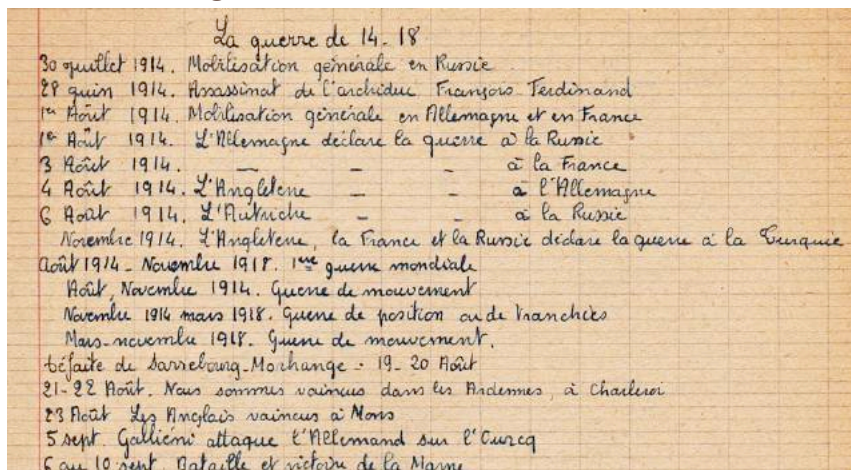 La guerre de 14-18
30 juillet 1914. Mobilisation générale en Russie
28 juin 1914. Assassinat de l'archiduc François Ferdinand
1er Août 1914. Mobilisation générale en Allemagne et en France
1er Août 1914. L'Allemagne déclare la guerre à la Russie
3 Août 1914. — — — à la France
4 Août 1914. L'Angleterre — — à l'Allemagne
6 Août 1914. L'Autriche — — à la Russie
Novembre 1914. L'Angleterre, la France et la Russie déclare la guerre à la Turquie
Août 1914 - Novembre 1918. 1ère guerre mondiale
Août, Novembre 1914. Guerre de mouvement
Novembre 1914 mars 1918. Guerre de position ou de tranchées
Mars-novembre 1918. Guerre de mouvement.
Défaite de Sarrebourg-Morhange - 19-20 Août
21-22 Août. Nous sommes vaincus dans les Ardennes, à Charleroi
23 Août Les Anglais vaincus à Mons
5 sept. Galliéni attaque l'Allemand sur l'Ourcq
6 au 10 sept. Bataille et victoire de la Marne